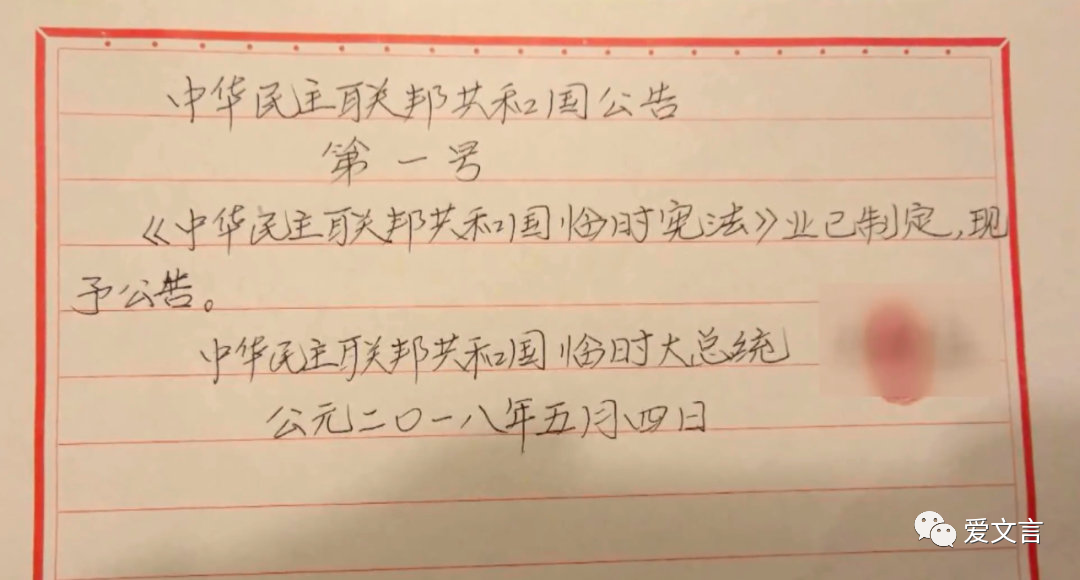 中华民主联邦共和国公告
第一号
《中华民主联邦共和国临时宪法》业已制定,现
予公告。
中华民主联邦共和国临时大总统
公元二〇一八年五月四日
爱文言